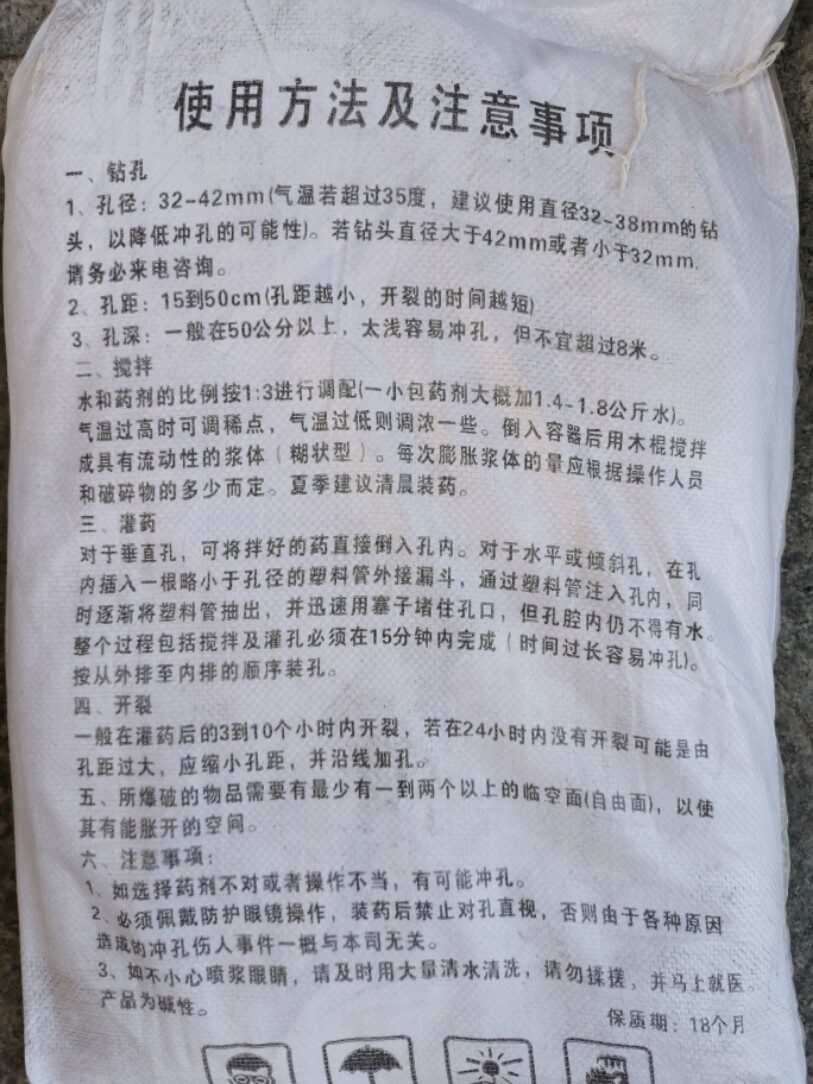 使用方法及注意事项
一、钻孔
1、孔径：32-42mm(气温若超过35度，建议使用直径32-38mm的钻
头，以降低冲孔的可能性)。若钻头直径大于42mm或者小于32mm,
请务必来电咨询。
2、孔距：15到50cm(孔距越小，开裂的时间越短)
3、孔深：一般在50公分以上，太浅容易冲孔，但不宜超过8米。
二、搅拌
水和药剂的比例按1:3进行调配(一小包药剂大概加1.4-1.8公斤水)。
气温过高时可调稀点，气温过低则调浓一些。倒入容器后用木棍搅拌
成具有流动性的浆体（糊状型）。每次膨胀浆体的量应根据操作人员
和破碎物的多少而定。夏季建议清晨装药。
三、灌药
对于垂直孔，可将拌好的药直接倒入孔内。对于水平或倾斜孔，在孔
内插入一根略小于孔径的塑料管外接漏斗，通过塑料管注入孔内，同
时逐渐将塑料管抽出，并迅速用塞子堵住孔口，但孔腔内仍不得有水。
整个过程包括搅拌及灌孔必须在15分钟内完成（时间过长容易冲孔)。
按从外排至内排的顺序装孔。
四、开裂
一般在灌药后的3到10个小时内开裂，若在24小时内没有开裂可能是由
孔距过大，应缩小孔距，并沿线加孔。
五、所爆破的物品需要有最少有一到两个以上的临空面(自由面)，以使
其有能胀开的空间。
六、注意事项：
1、如选择药剂不对或者操作不当，有可能冲孔。
2、必须佩戴防护眼镜操作，装药后禁止对孔直视，否则由于各种原因
造成的冲孔伤人事件一概与本司无关。
3、如不小心喷浆眼睛，请及时用大量清水清洗，请勿揉搓，并马上就医。
产品为碱性。
保质期：18个月